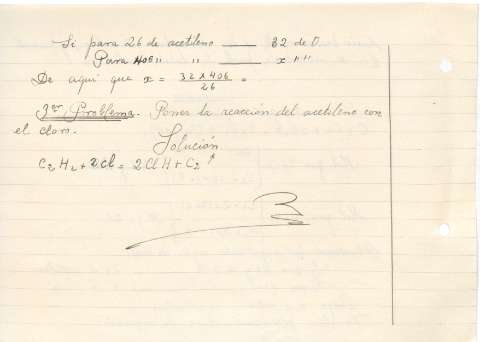 Si para 26 de acetileno —— 32 de O
Para 406 " " —— x " "
De aquí que x = 32 x 406 / 26 =
3er Problema. Poner la reacción del acetileno con
el cloro.
Solución
C2H2 + 2Cl = 2ClH + C2 ↑